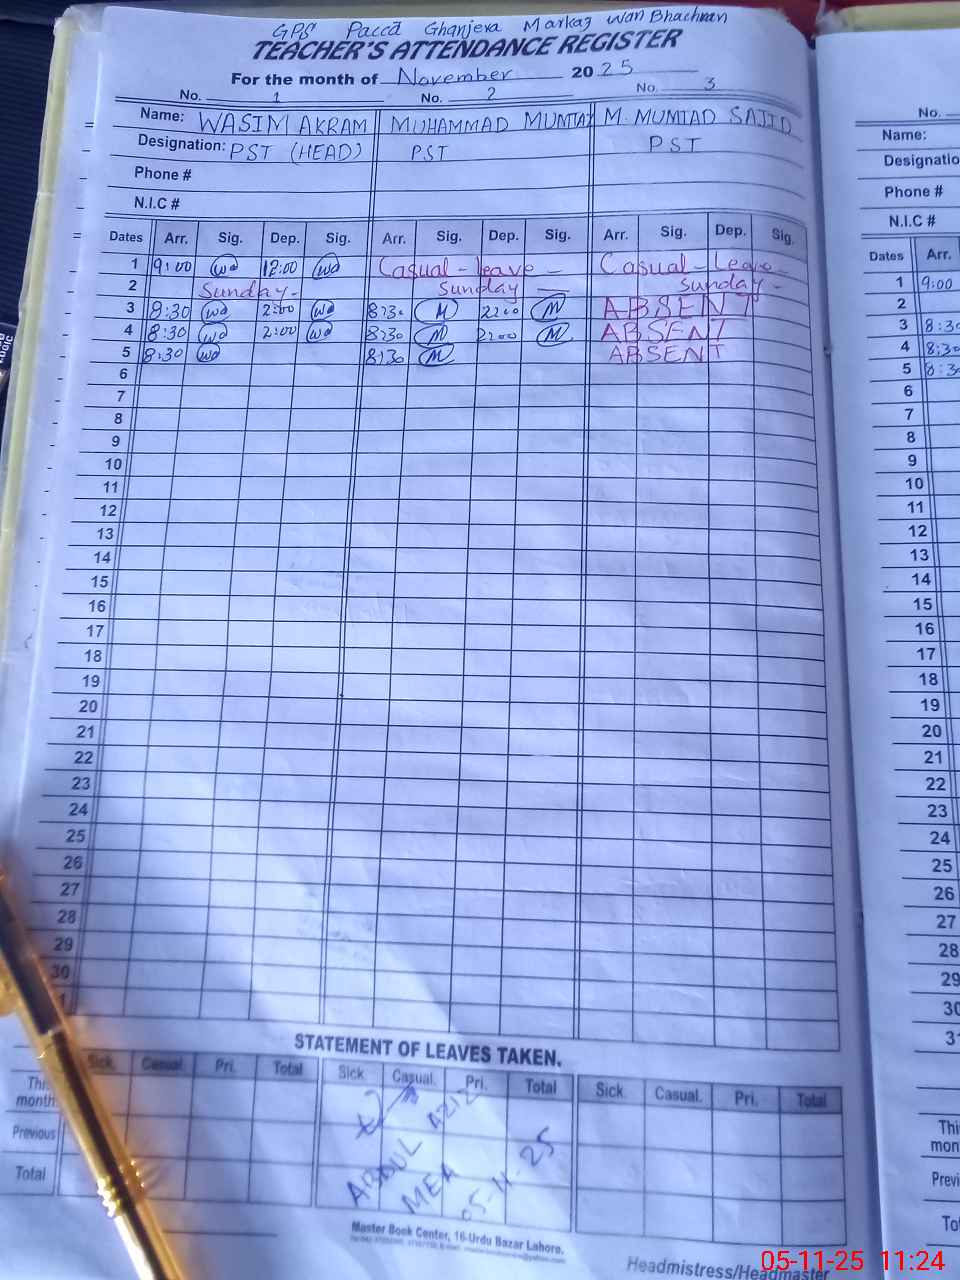 GPS Pacca Ghanjera Markaz Wan Bhachran
TEACHER'S ATTENDANCE REGISTER
For the month of November 2025
No. 1 No. 2 No. 3
Name: WASIM AKRAM MUHAMMAD MUMTAZ M. MUMTAD SAJID
Designation: PST (HEAD) PST PST
Phone #
N.I.C #
Dates Arr. Sig. Dep. Sig. Arr. Sig. Dep. Sig. Arr. Sig. Dep. Sig.
1 9:00 wa 12:00 wa Casual - leave - Casual - Leave -
2 Sunday - Sunday - Sunday -
3 8:30 wa 2:00 wa 8:30 M 2:00 M ABSENT
4 8:30 wa 2:00 wa 8:30 M 2:00 M ABSENT
5 8:30 wa 8:30 M ABSENT
6
7
8
9
10
11
12
13
14
15
16
17
18
19
20
21
22
23
24
25
26
27
28
29
30
STATEMENT OF LEAVES TAKEN.
Sick. Casual. Pri. Total Sick. Casual. Pri. Total Sick. Casual. Pri. Total
This month
Previous
Total
ABDUL AZIZ
MEA
05-11-25
Master Book Center, 16-Urdu Bazar Lahore.
Headmistress/Headmaster
No.
Name:
Designatio
Phone #
N.I.C #
Dates Arr.
1 9:00
2
3 8:30
4 8:30
5 8:30
6
7
8
9
10
11
12
13
14
15
16
17
18
19
20
21
22
23
24
25
26
27
28
29
30
31
Thi
mon
Previ
To
05-11-25 11:24